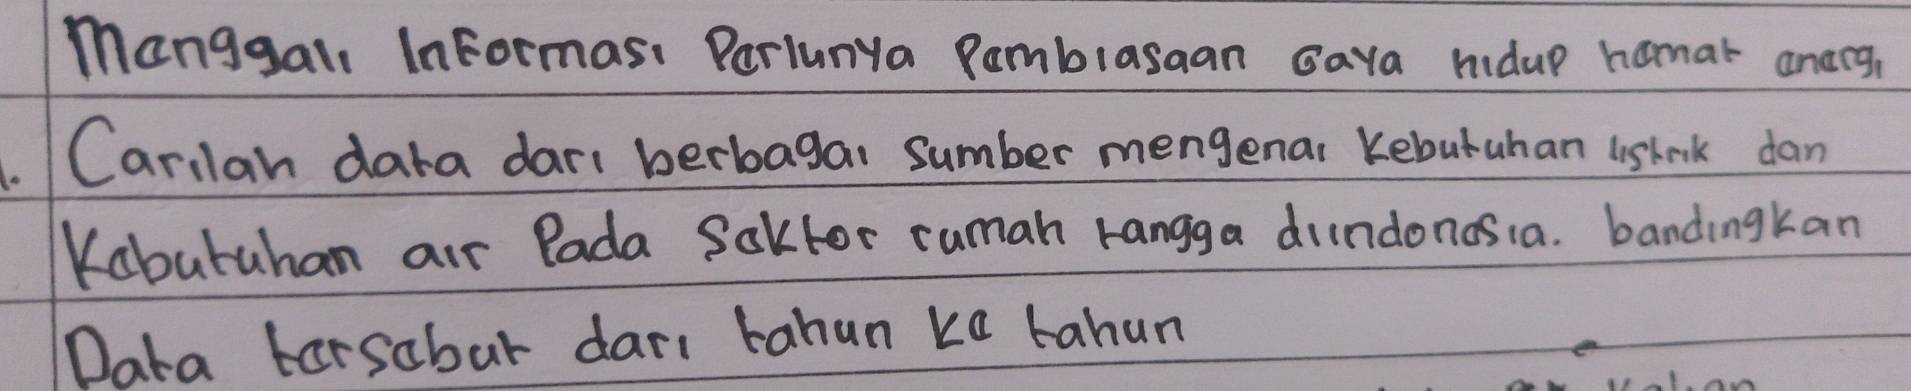 Menggali Informasi Perlunya Pembiasaan Gaya hidup hemat energi
1. Carilah data dari berbagai sumber mengenai Kebutuhan listrik dan
Kebutuhan air Pada Sektor rumah tangga diindonesia. bandingkan
Data tersebut dari tahun Ke tahun